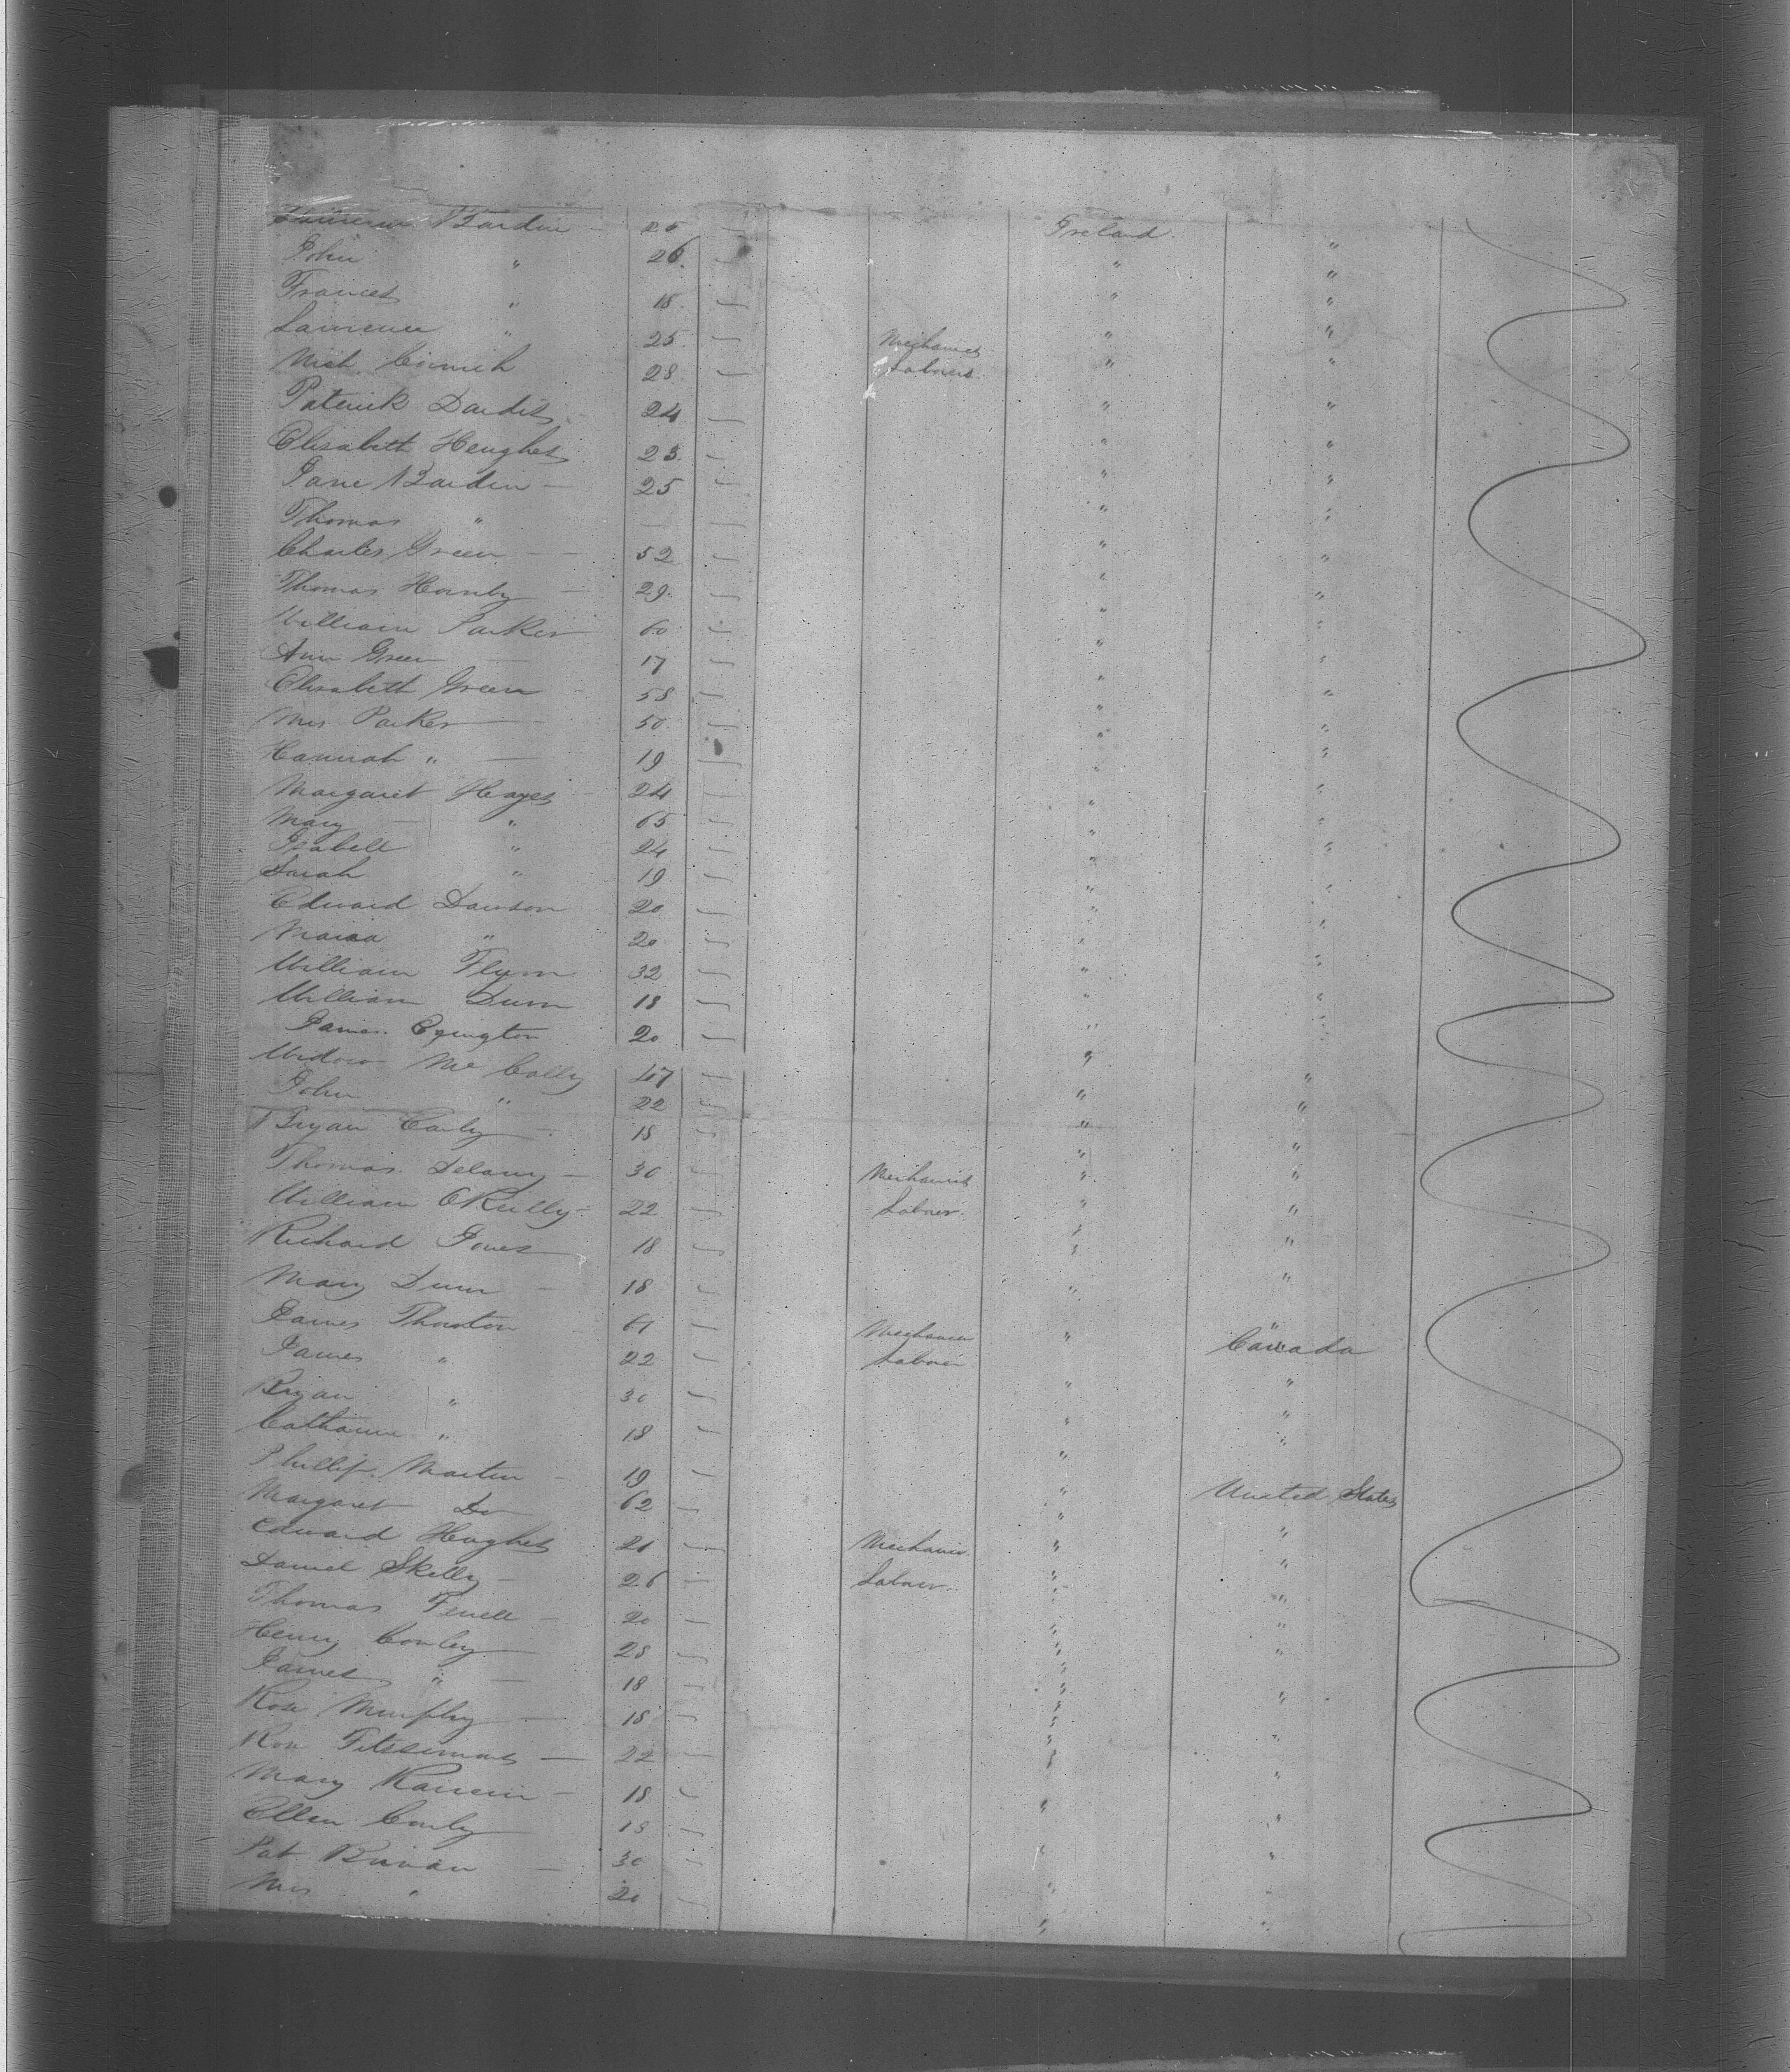 Bardin - 25 Ireland
John " 26 " "
Frances " 18 " "
Lawrence " 25 Mechanics " "
Mich 28 Labores " "
Paterick Dardis - 24 " "
Elisabeth Heughes 23 " "
Jane Barden - 25 " "
Thomas " - " "
Charles Green - - 52 " "
Thomas Hornby - 29 " "
William Parker 60 " "
Ann Green - 17 " "
Elisabeth Green - 58 " "
Mrs Parker - 50 " "
Hannah " - 19 " "
Margaret Hayes - 24 " "
Mary - " 65 " "
Isabell " 24 " "
Sarah " 19 " "
Edward Dawson 20 " "
Maraa " 20 " "
William Flynn 32 " "
William Dunn 18 " "
James Egington 20 " "
Widow Mc Cally 47 " "
John " 22 " "
Bryan Carly - 18 " "
Thomas Delany - 30 Mechanics " "
William OReilly - 22 Labner " "
Richard Jones 18 " "
Mary Dunn - 18 " "
James Thornton 61 Mechanic " "
James " 22 Labner Canada
Bryan " 30 " "
Catharine " 18 " "
Phillip Martin - 19 " "
Margaret Do 62 " United States
Edward Hughes 21 Mechanic " "
Daniel Skelly - 26 Labner " "
Thomas - 20 " "
Henry Conley 28 " "
James " - 18 " "
Rose Murphy - 18 " "
Rose Fitssimons - 22 " "
Mary - 18 " "
Ellen Conly 18 " "
Pat - 30 " "
Mrs " 20 " "